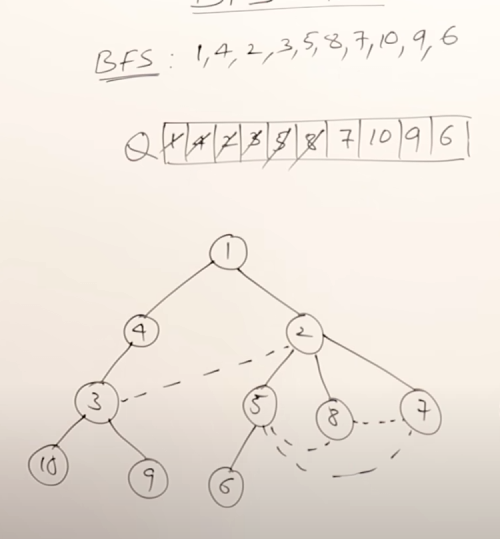 BFS : 1,4,2,3,5,8,7,10,9,6
Q 1 4 2 3 5 8 7 10 9 6
1
4 2
3 5 8 7
10 9 6